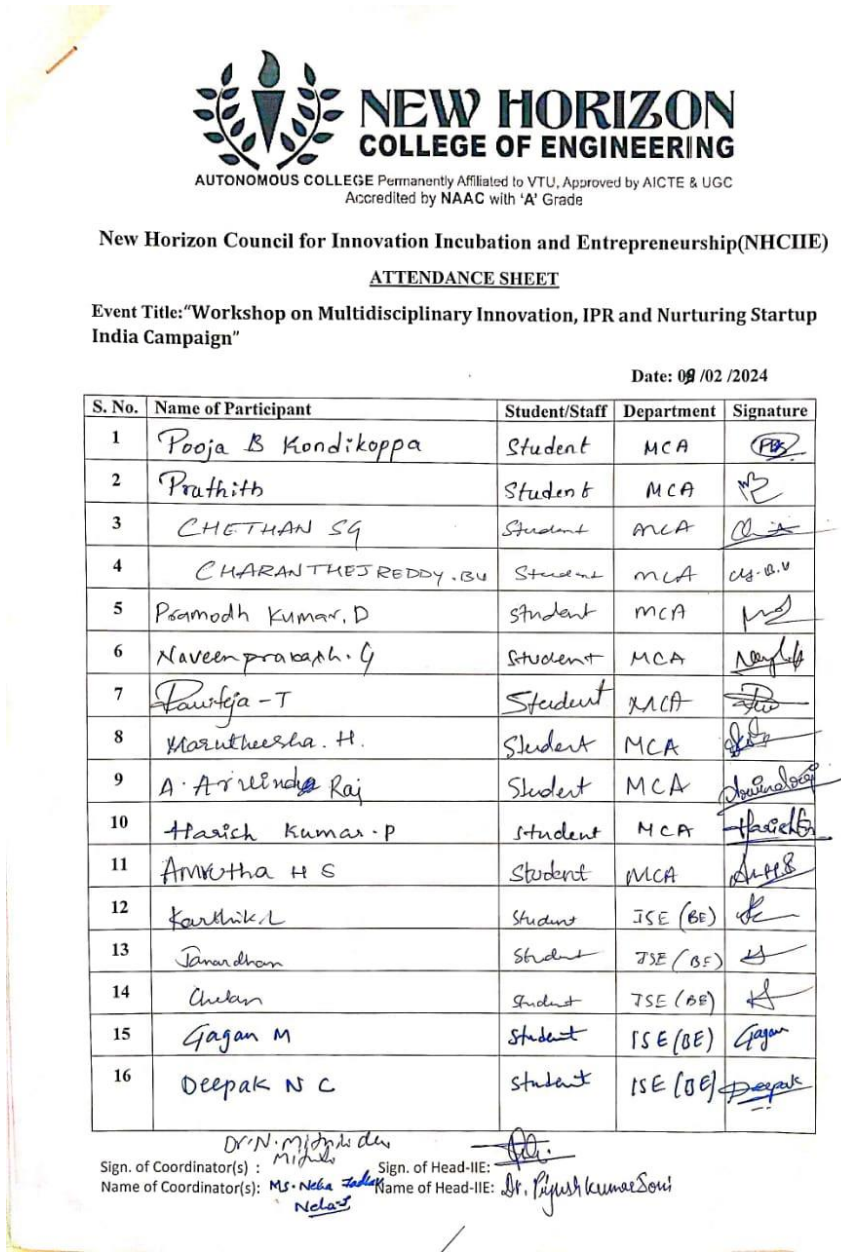 NEW HORIZON
COLLEGE OF ENGINEERING
AUTONOMOUS COLLEGE Permanently Affiliated to VTU, Approved by AICTE & UGC
Accredited by NAAC with 'A' Grade
New Horizon Council for Innovation Incubation and Entrepreneurship(NHCIIE)
ATTENDANCE SHEET
Event Title:"Workshop on Multidisciplinary Innovation, IPR and Nurturing Startup
India Campaign"
Date: 09 /02 /2024
S. No. Name of Participant Student/Staff Department Signature
1 Pooja B Kondikoppa Student MCA PBK
2 Prathith Student MCA
3 CHETHAN SG Student MCA
4 CHARANTHEJREDDY.BV Student MCA
5 Pramodh Kumar.D Student MCA
6 Naveenprakash.G Student MCA
7 Student MCA
8 Marutheesha. H. Student MCA
9 A. Arvindra Raj Student MCA
10 Harish Kumar.P Student MCA
11 Amrutha H S Student MCA
12 Karthik.L Student ISE (BE)
13 Janardhan Student ISE (BE)
14 Chetan Student ISE (BE)
15 Gagan M Student ISE (BE) Gagan
16 Deepak N C Student ISE (BE) Deepak
Dr.N.
Sign. of Coordinator(s) : Sign. of Head-IIE:
Name of Coordinator(s): Ms. Neha Name of Head-IIE: Dr. Piyush Kumar Soni